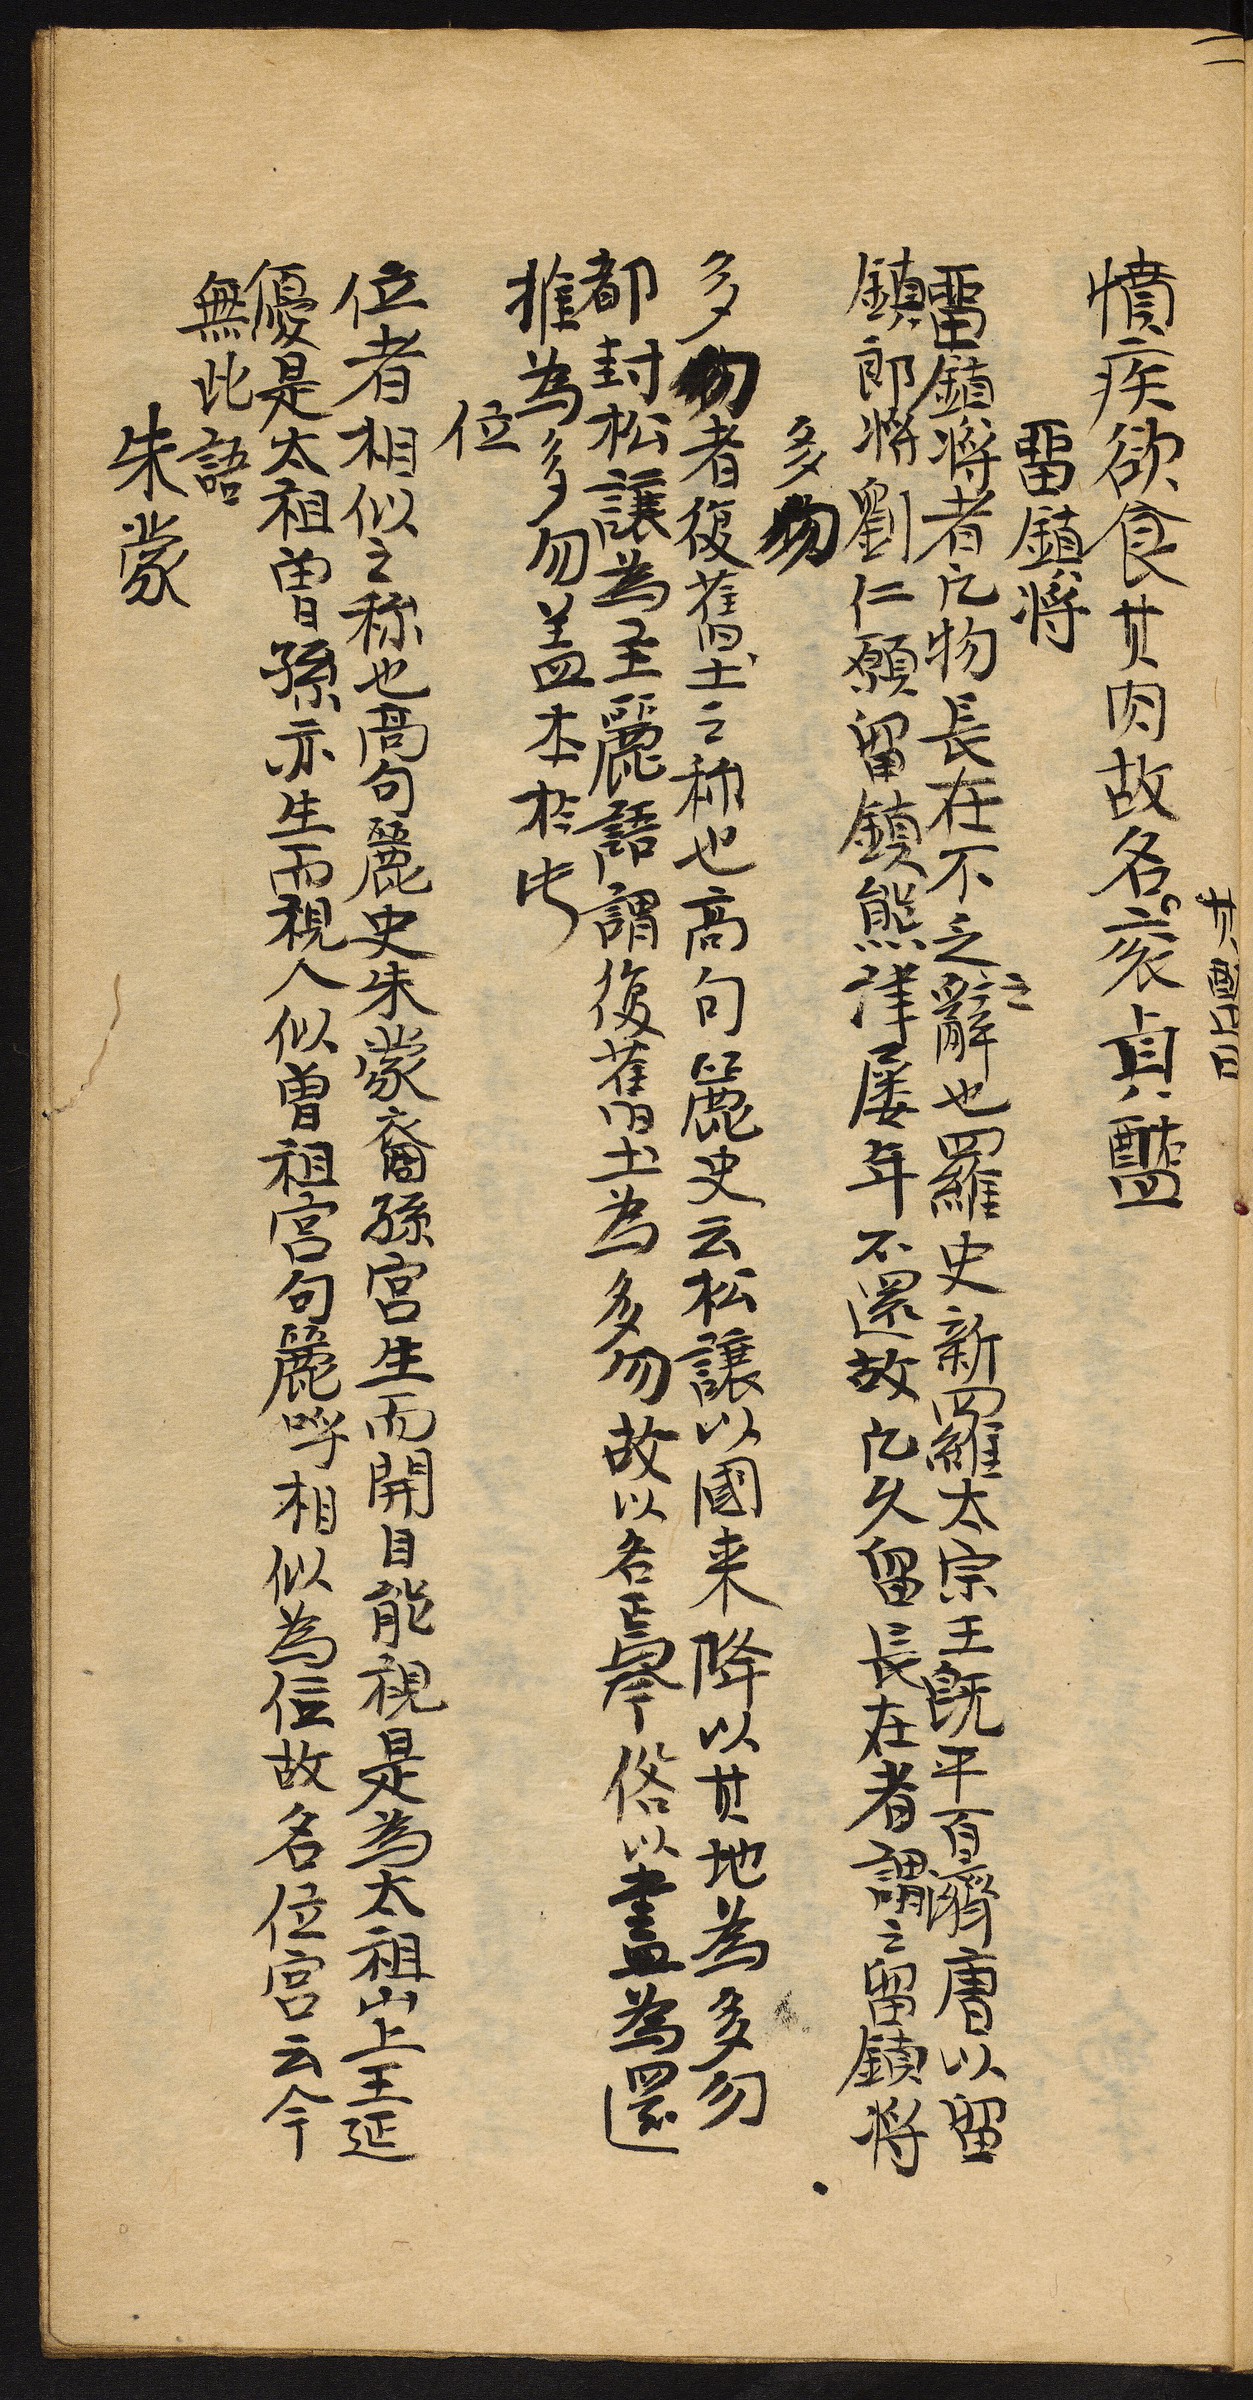 憤疾欲食其肉故名家貞醢
其醢曰
畱鎮將
畱鎮將者凢物長在不之辭也羅史新羅太宗王旣平百濟唐以留
之
鎮郎將劉仁願留鎮熊津屡年不還故凢久留長在者謂之留鎮將
多勿
多勿者復舊土之称也高句麗史云松讓以國来降以其地為多勿
都封松讓為主麗語謂復舊土為多勿故以名焉今俗以盡為還
推為多勿盖本於此
位
位者相似之称也高句麗史朱蒙裔孫宮生而開目能視是為太祖山上王延
優是太祖曾孫亦生而視人似曾祖宮句麗呼相似為位故名位宮云今
無此語
朱蒙